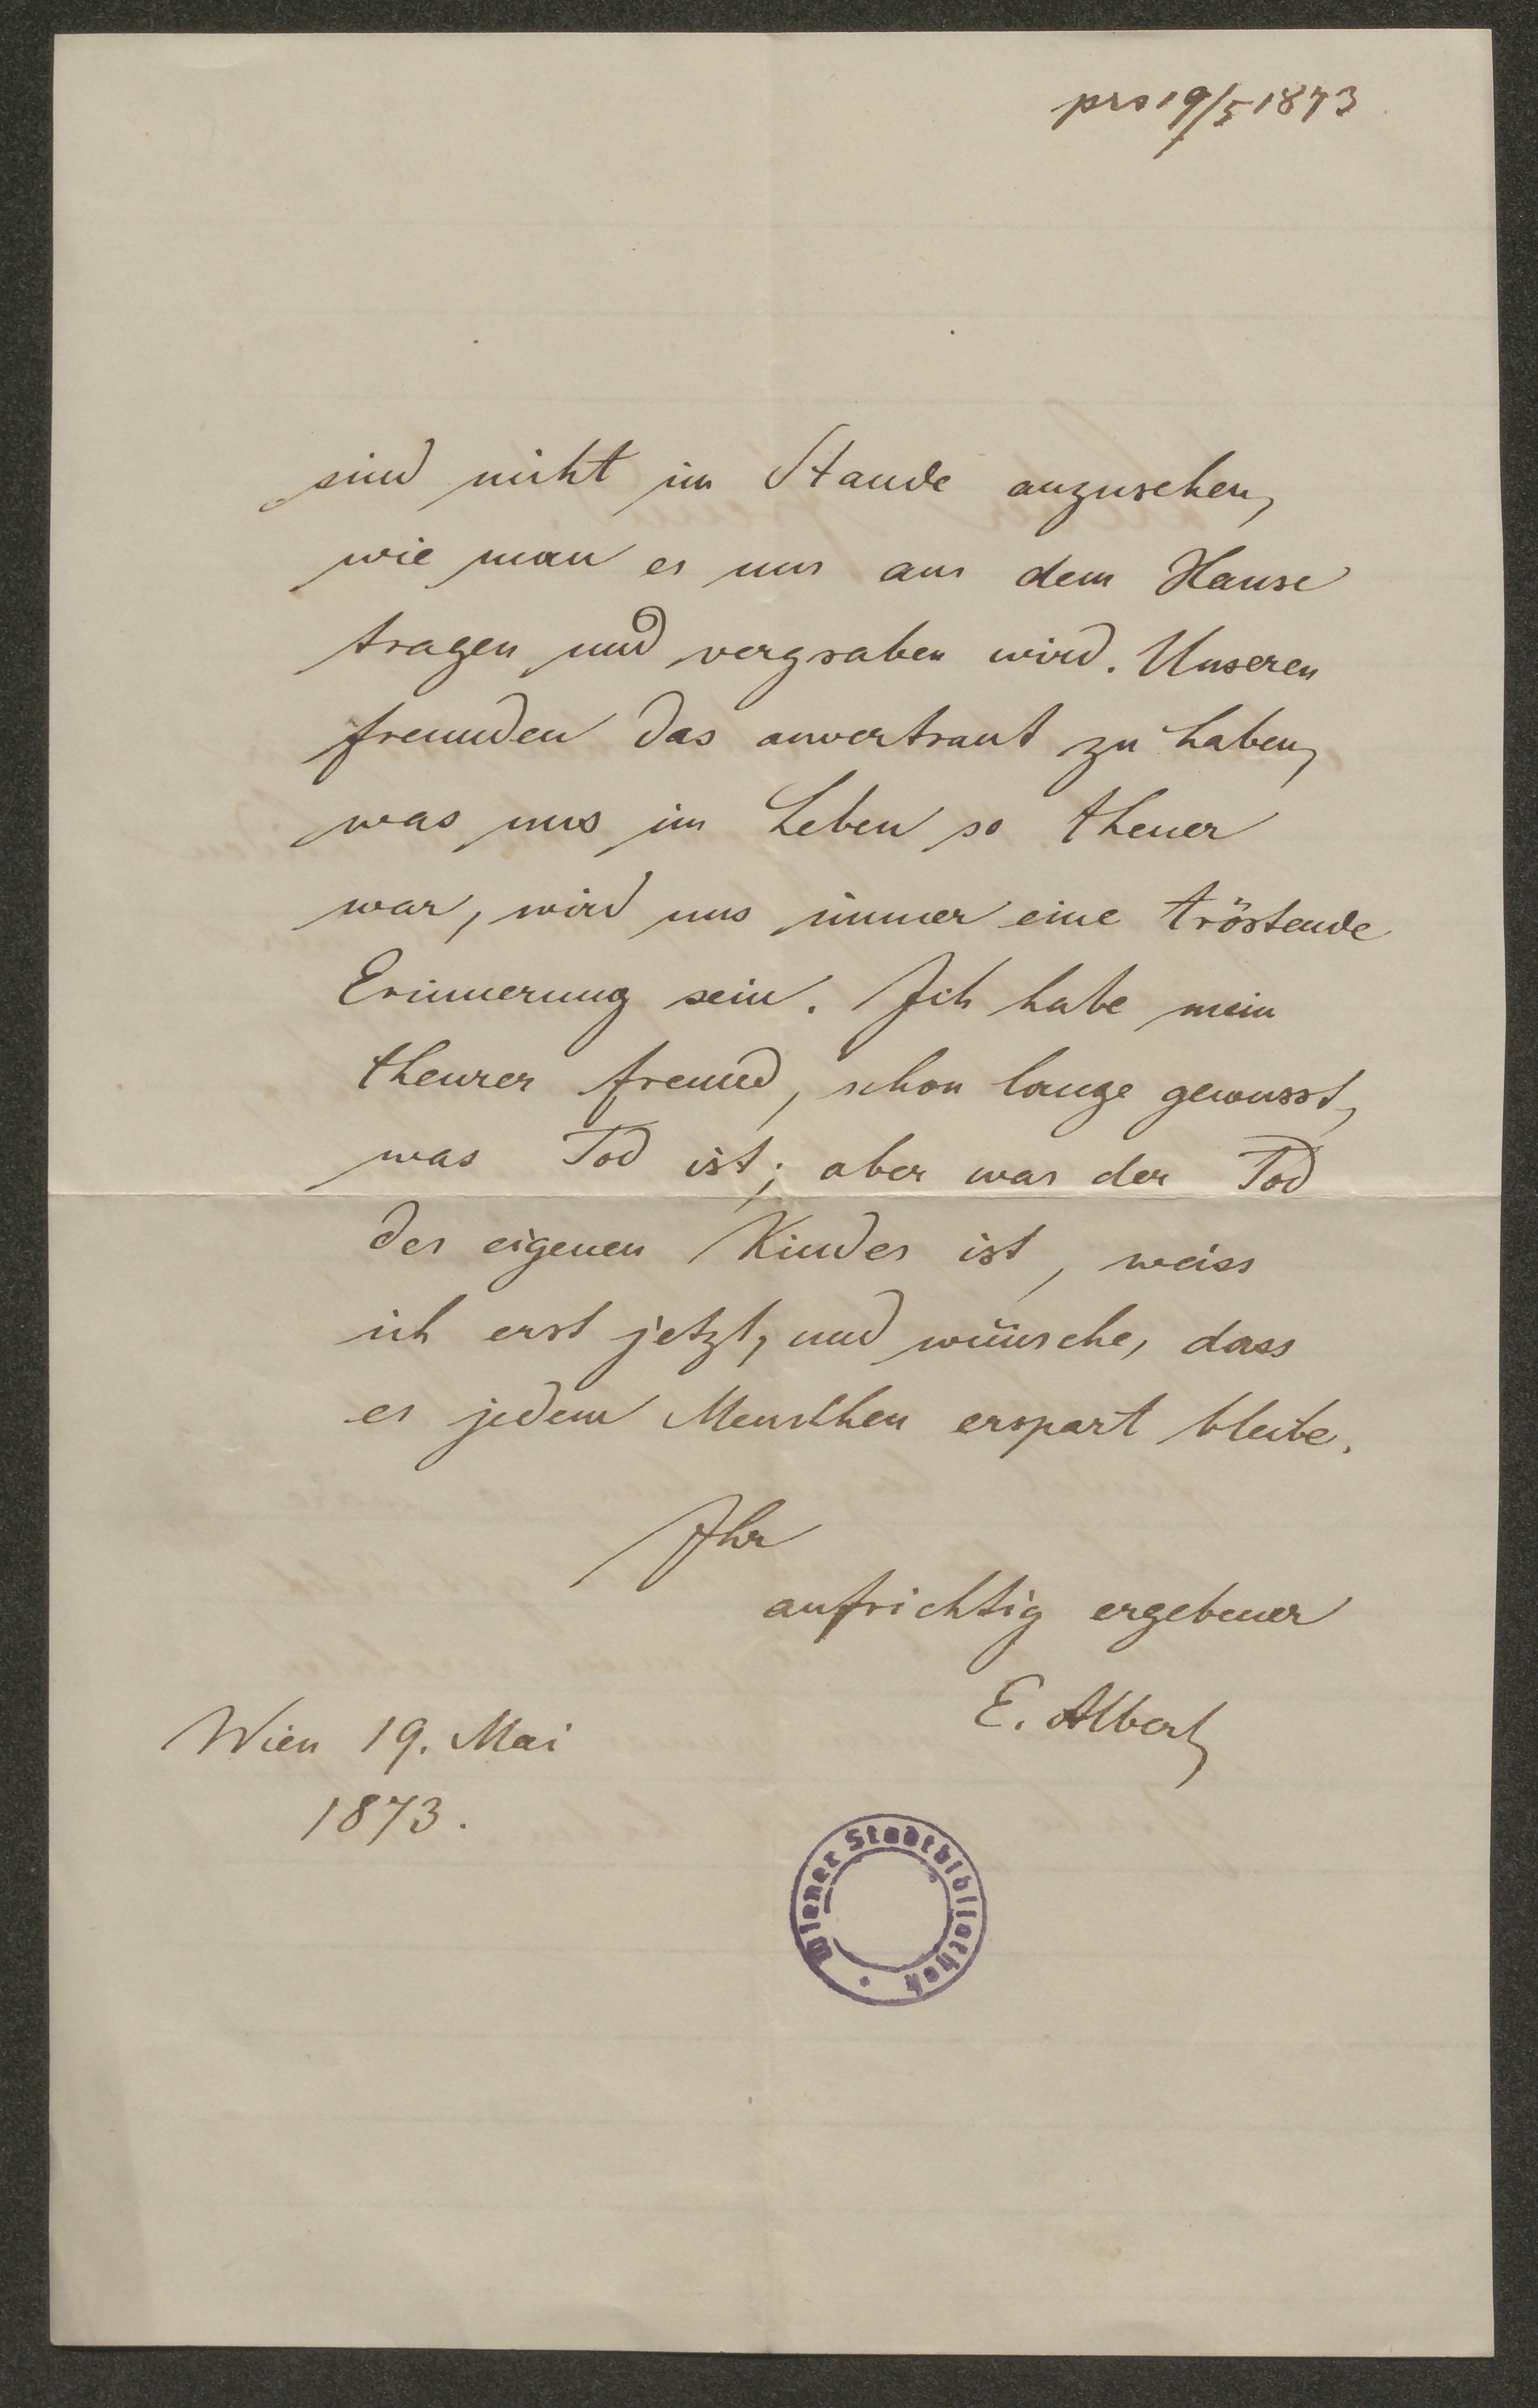 prs 19/5 1873
sind nicht im Stande anzusehen,
wie man es uns aus dem Hause
tragen und vergraben wird. Unseren
Freunden das anvertraut zu haben,
was uns im Leben so theuer
war, wird uns immer eine tröstende
Erinnerung sein. Ich habe mein
theurer Freund, schon lange gewusst,
was Tod ist; aber was der Tod
des eigenen Kindes ist, weiss
ich erst jetzt, und wünsche, dass
es jedem Menschen erspart bleibe.
Ihr
aufrichtig ergebener
E. Albert
Wien 19. Mai
1873.
Wiener Stadtbibliothek